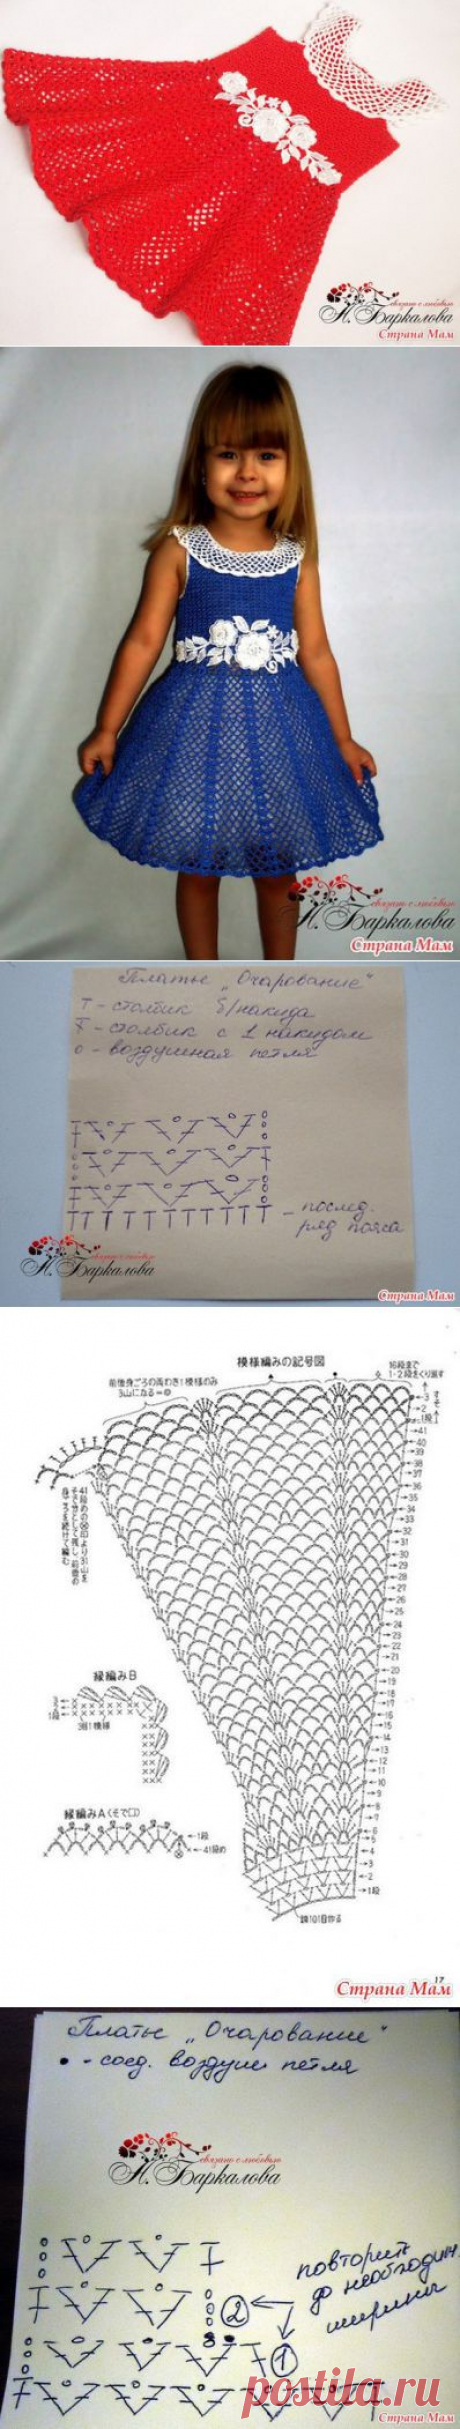 связано с любовью
Н. Баркалова
Страна Мам
связано с любовью
Н. Баркалова
Страна Мам
Платье „Очарование“
Т - столбик б/накида
Ŧ - столбик с 1 накидом
о - воздушная петля
- послед.
ряд пояса
связано с любовью
Н. Баркалова
Страна Мам
模様編みの記号図
前後身ごろの両わき1模様のみ
3山になる=◎
16段まで
1·2段をくり返す
すそ
3
2
1段
41
40
39
38
37
36
35
34
33
32
31
30
29
28
27
26
25
24
23
22
21
20
19
18
17
16
15
14
13
12
11
10
9
8
7
6
5
4
3
2
1段
鎖101目作る
縁編みB
3
1段
3目1模様
縁編みA(そで口)
1段
41段め
17
Страна Мам
Платье „Очарование“
• - соед. воздушн петля
связано с любовью
Н. Баркалова
повторить
до необходим.
ширины
2
1
postila.ru
Страна Мам